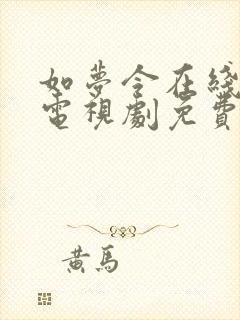 如夢令在綫
電視劇免費
黃馬